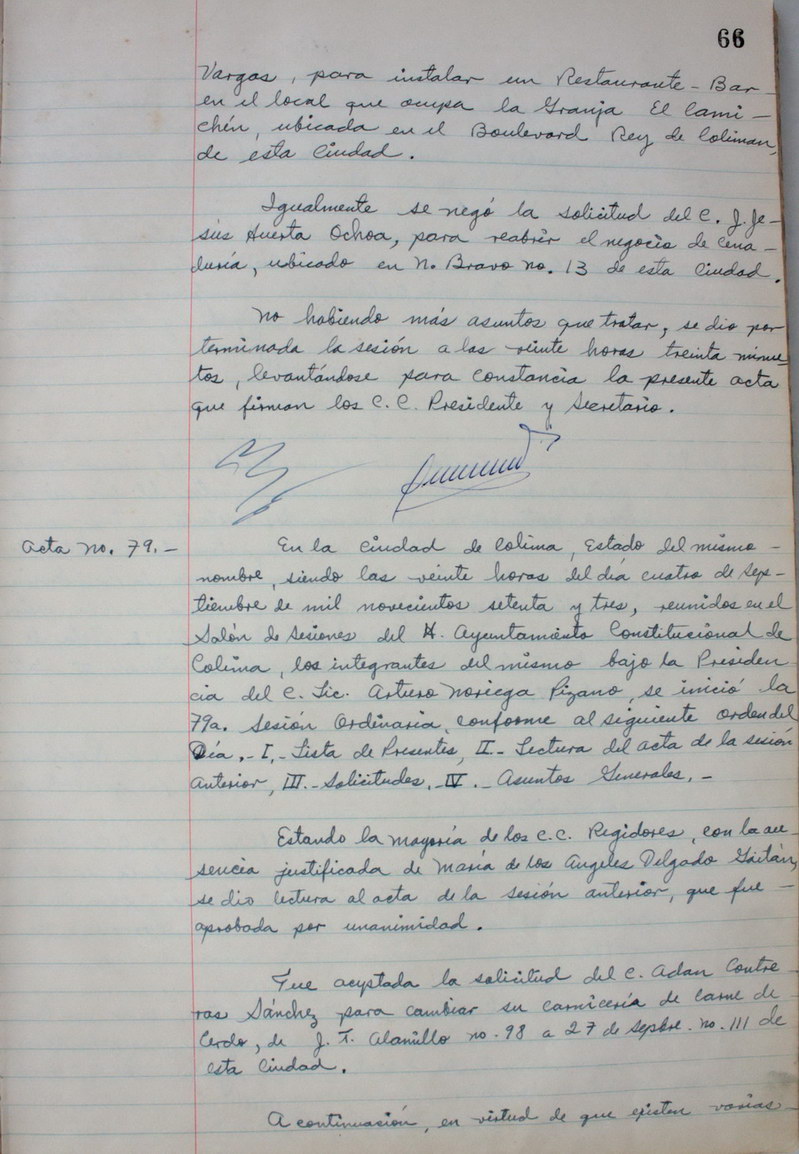 66
Vargas, para instalar un Restaurante-Bar
en el local que ocupa la Granja El Cami-
chén, ubicada en el Boulevard Rey de Coliman,
de esta Ciudad.
Igualmente se negó la solicitud del C. J. Je-
sús Huerta Ochoa, para reabrir el negocio de cena-
duría, ubicado en N. Bravo no. 13 de esta Ciudad.
No habiendo más asuntos que tratar, se dio por
terminada la sesión a las veinte horas treinta minu-
tos, levantándose para constancia la presente acta
que firman los C.C. Presidente y Secretario.
Acta no. 79.-
En la Ciudad de Colima, Estado del mismo -
nombre, siendo las veinte horas del día cuatro de Sep-
tiembre de mil novecientos setenta y tres, reunidos en el
Salón de Sesiones del H. Ayuntamiento Constitucional de
Colima, los integrantes del mismo bajo la Presiden-
cia del C. Lic. Arturo Noriega Pizano, se inició la
79a. Sesión Ordinaria, conforme al siguiente orden del
Día.- I.- Lista de Presentes, II.- Lectura del acta de la sesión
anterior, III.- Solicitudes.- IV.- Asuntos Generales.-
Estando la mayoría de los C.C. Regidores, con la au-
sencia justificada de María de los Angeles Delgado Gaitán,
se dio lectura al acta de la sesión anterior, que fue -
aprobada por unanimidad.
Fue aceptada la solicitud del C. Adan Contre
ras Sánchez para cambiar su carnicería de Carne de
Cerdo, de J. T. Alamillo no. 98 a 27 de Sepbre. no. 111 de
esta Ciudad.
A continuación, en virtud de que existen varias